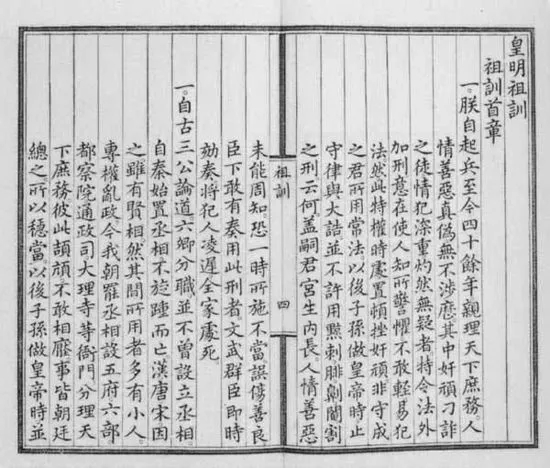 皇明祖訓
祖訓首章
一。朕自起兵至今四十餘年親理天下庶務。人
情善惡真偽無不涉歷其中奸頑刁詐
之徒情犯深重灼然無疑者特令法外
加刑意在使人知所警懼不敢輕易犯
法然此特權時處置頓挫奸頑非守成
之君所用常法以後子孫做皇帝時止
守律與大誥並不許用黥刺腓劓閹割
之刑云何蓋嗣君宮生內長。人情善惡
祖訓
四
未能周知。恐一時所施不當誤傷善良
臣下敢有奏用此刑者文武群臣即時
劾奏將犯人凌遲全家處死
一。自古三公論道六卿分職並不曾設立丞相。
自秦始置丞相不旋踵而亡漢唐宋因
之雖有賢相然其間所用者多有小人。
專權亂政今我朝罷丞相設五府六部。
都察院通政司大理寺等衙門分理天
下庶務彼此頡頏不敢相壓事皆朝廷
總之所以穩當。以後子孫做皇帝時並